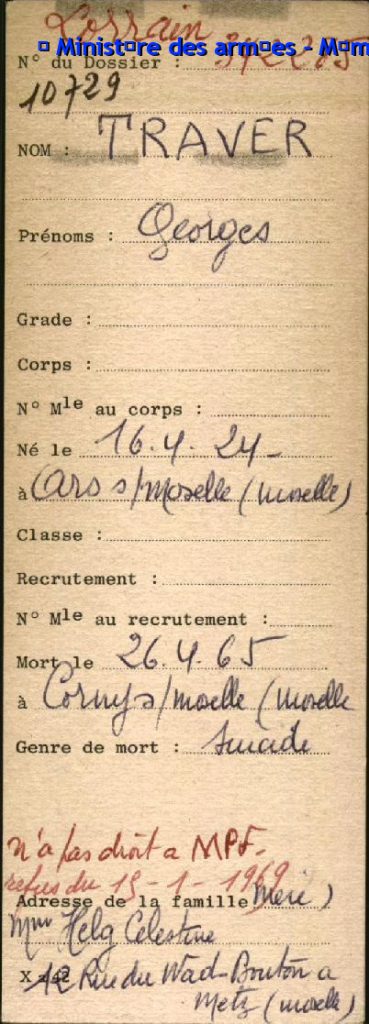 Lorrain
© Ministère des armées - Mém
N° du Dossier :
10729
NOM : TRAVER
Prénoms : Georges
Grade :
Corps :
N° Mle au corps :
Né le 16.4.24-
à Ars s/Moselle (Moselle)
Classe :
Recrutement :
N° Mle au recrutement :
Mort le 26.4.65
à Corny s/moselle (moselle
Genre de mort : suicide
n'a pas droit a MPF.
refus du 15-1-1969
Adresse de la famille Mère)
Mme Helg Celestine
12 Rue du Wad-Bouton a
Metz (moselle)